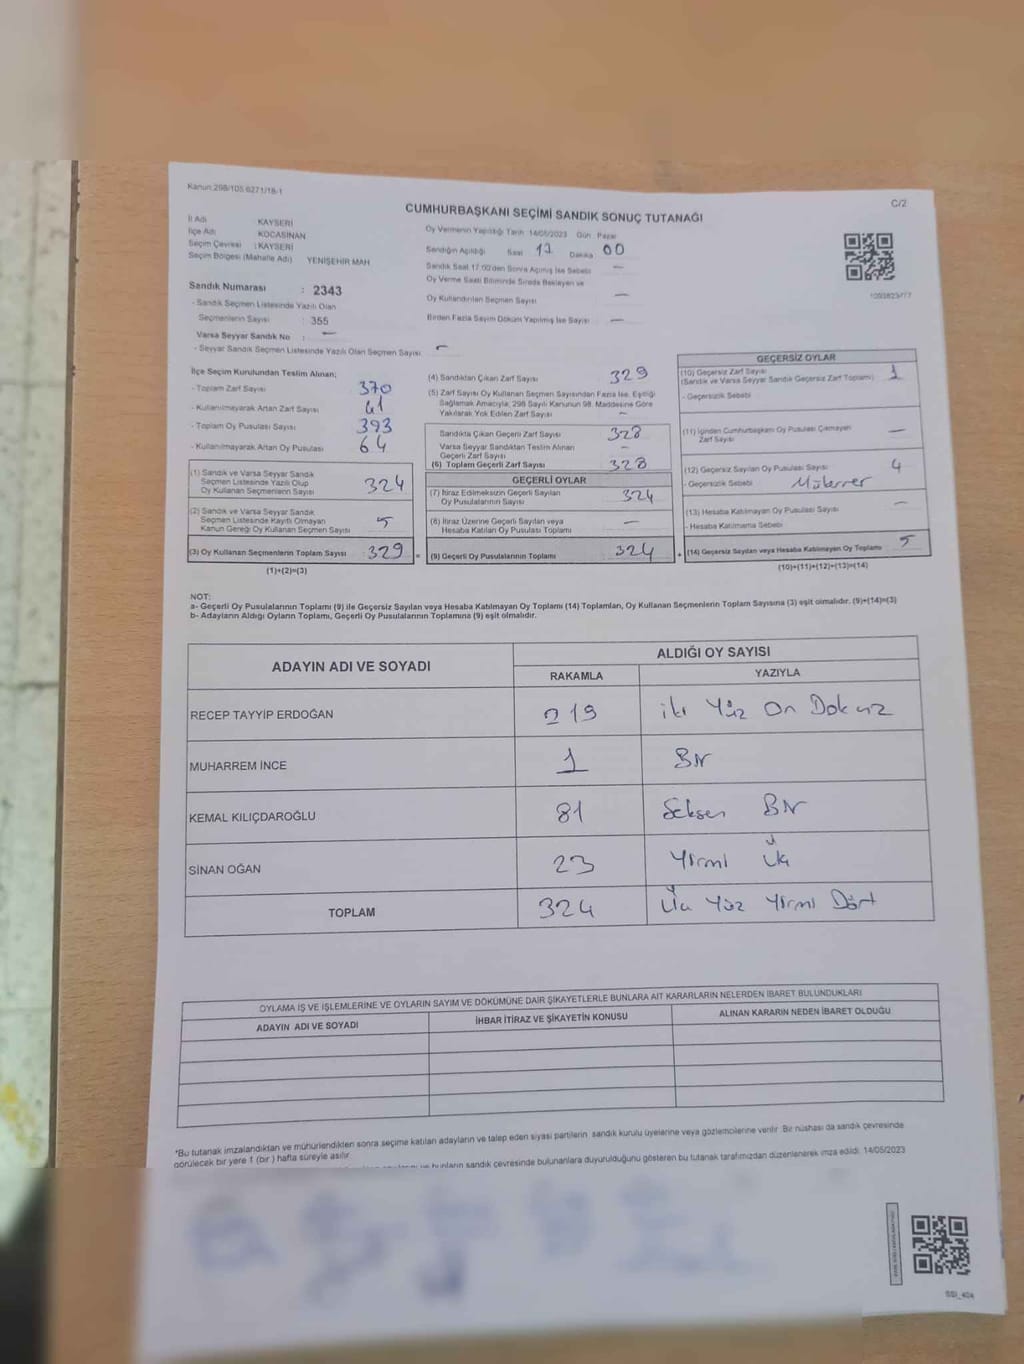 Kanun:298/105.6271/18/1
C/2
CUMHURBAŞKANI SEÇİMİ SANDIK SONUÇ TUTANAĞI
İl Adı KAYSERİ
İlçe Adı KOCASİNAN
Seçim Çevresi : KAYSERİ
Seçim Bölgesi (Mahalle Adı) YENİŞEHİR MAH
Oy Vermenin Yapıldığı Tarih 14/05/2023 Gün Pazar
Sandığın Açıldığı Saat 17 Dakika 00
Sandık Saat 17:00'den Sonra Açılmış İse Sebebi —
Oy Verme Saati Bitiminde Sırada Bekleyen ve
Oy Kullandırılan Seçmen Sayısı —
Birden Fazla Sayım Döküm Yapılmış İse Sayısı —
Sandık Numarası : 2343
- Sandık Seçmen Listesinde Yazılı Olan
Seçmenlerin Sayısı : 355
Varsa Seyyar Sandık No : —
- Seyyar Sandık Seçmen Listesinde Yazılı Olan Seçmen Sayısı —
İlçe Seçim Kurulundan Teslim Alınan;
- Toplam Zarf Sayısı 370
- Kullanılmayarak Artan Zarf Sayısı 41
- Toplam Oy Pusulası Sayısı 393
- Kullanılmayarak Artan Oy Pusulası 64
(1) Sandık ve Varsa Seyyar Sandık
Seçmen Listesinde Yazılı Olup
Oy Kullanan Seçmenlerin Sayısı 324
(2) Sandık ve Varsa Seyyar Sandık
Seçmen Listesinde Kayıtlı Olmayan
Kanun Gereği Oy Kullanan Seçmen Sayısı 5
(3) Oy Kullanan Seçmenlerin Toplam Sayısı 329 =
(1)+(2)=(3)
(4) Sandıktan Çıkan Zarf Sayısı 329
(5) Zarf Sayısı Oy Kullanan Seçmen Sayısından Fazla İse, Eşitliği
Sağlamak Amacıyla, 298 Sayılı Kanunun 98. Maddesine Göre
Yakılarak Yok Edilen Zarf Sayısı —
Sandıkta Çıkan Geçerli Zarf Sayısı 328
Varsa Seyyar Sandıktan Teslim Alınan
Geçerli Zarf Sayısı —
(6) Toplam Geçerli Zarf Sayısı 328
GEÇERLİ OYLAR
(7) İtiraz Edilmeksizin Geçerli Sayılan
Oy Pusulalarının Sayısı 324
(8) İtiraz Üzerine Geçerli Sayılan veya
Hesaba Katılan Oy Pusulası Toplamı —
(9) Geçerli Oy Pusulalarının Toplamı 324 +
GEÇERSİZ OYLAR
(10) Geçersiz Zarf Sayısı 1
(Sandık ve Varsa Seyyar Sandık Geçersiz Zarf Toplamı)
- Geçersizlik Sebebi
(11) İçinden Cumhurbaşkanı Oy Pusulası Çıkmayan
Zarf Sayısı —
(12) Geçersiz Sayılan Oy Pusulası Sayısı 4
- Geçersizlik Sebebi Mükerrer
(13) Hesaba Katılmayan Oy Pusulası Sayısı —
- Hesaba Katılmama Sebebi
(14) Geçersiz Sayılan veya Hesaba Katılmayan Oy Toplamı 5
(10)+(11)+(12)+(13)=(14)
NOT:
a- Geçerli Oy Pusulalarının Toplamı (9) ile Geçersiz Sayılan veya Hesaba Katılmayan Oy Toplamı (14) Toplamları, Oy Kullanan Seçmenlerin Toplam Sayısına (3) eşit olmalıdır. (9)+(14)=(3)
b- Adayların Aldığı Oyların Toplamı, Geçerli Oy Pusulalarının Toplamına (9) eşit olmalıdır.
ADAYIN ADI VE SOYADI
ALDIĞI OY SAYISI
RAKAMLA YAZIYLA
RECEP TAYYİP ERDOĞAN 219 iki Yüz On Dokuz
MUHARREM İNCE 1 Bir
KEMAL KILIÇDAROĞLU 81 Seksen Bir
SİNAN OĞAN 23 Yirmi Üç
TOPLAM 324 Üç Yüz Yirmi Dört
OYLAMA İŞ VE İŞLEMLERİNE VE OYLARIN SAYIM VE DÖKÜMÜNE DAİR ŞİKAYETLERLE BUNLARA AİT KARARLARIN NELERDEN İBARET BULUNDUKLARI
ADAYIN ADI VE SOYADI İHBAR İTİRAZ VE ŞİKAYETİN KONUSU ALINAN KARARIN NEDEN İBARET OLDUĞU
*Bu tutanak imzalandıktan ve mühürlendikten sonra seçime katılan adayların ve talep eden siyasi partilerin sandık kurulu üyelerine veya gözlemcilerine verilir. Bir nüshası da sandık çevresinde
görülecek bir yere 1 (bir) hafta süreyle asılır.
bunların sandık çevresinde bulunanlara duyurulduğunu gösteren bu tutanak tarafımızdan düzenlenerek imza edildi. 14/05/2023